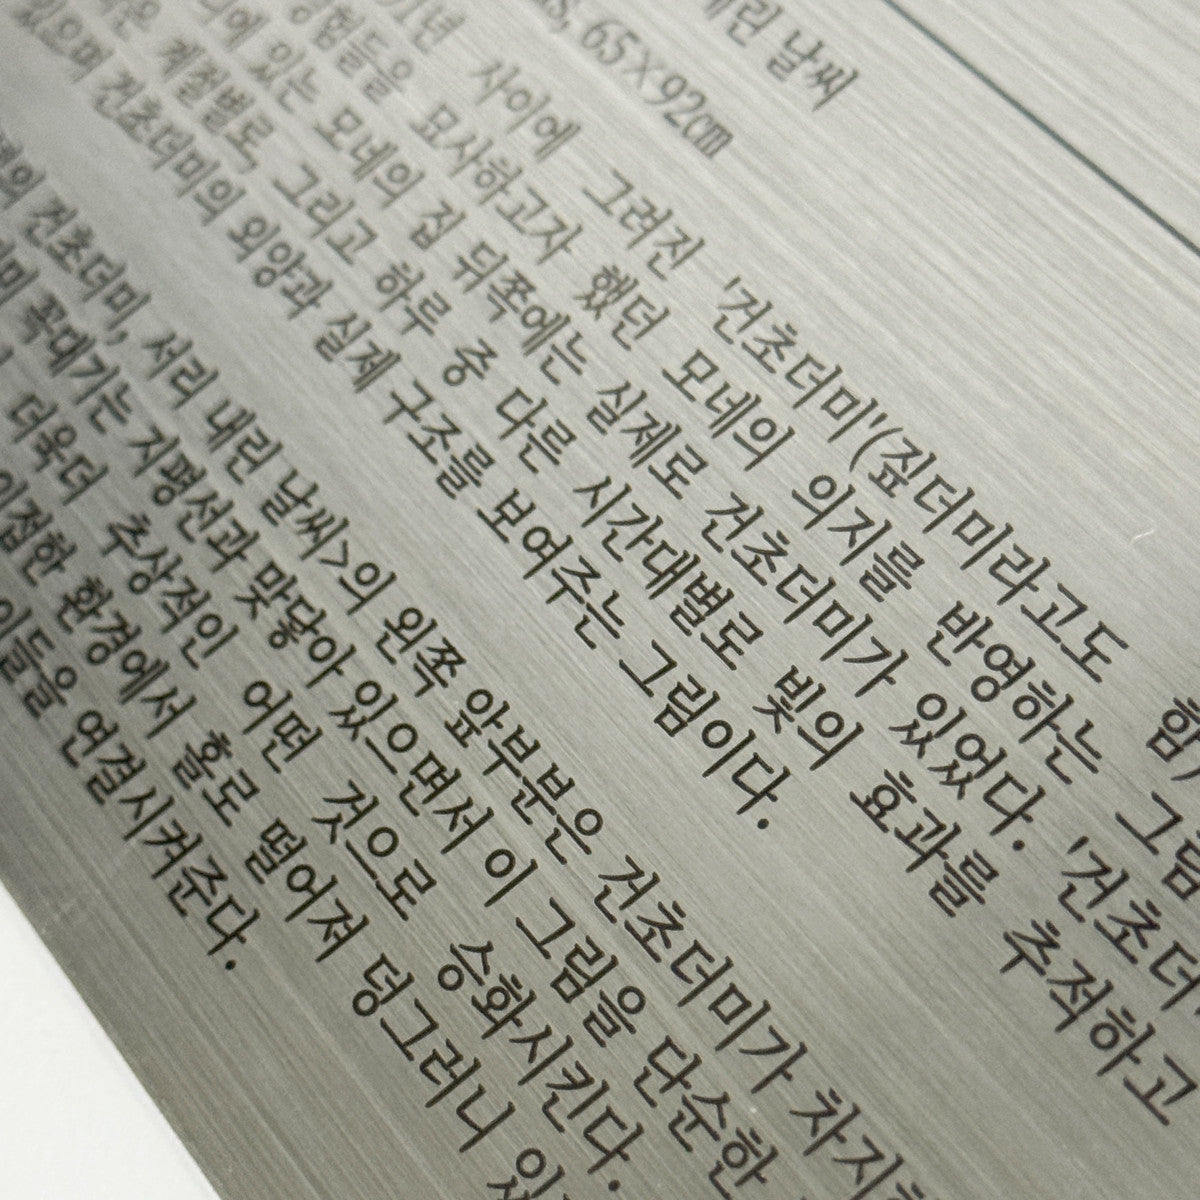 내린 날씨
65×92㎝
사이에 그려진 '건초더미'(짚더미라고도 함)
경험들을 묘사하고자 했던 모네의 의지를 반영하는 그림
있는 모네의 집 뒤쪽에는 실제로 건초더미가 있었다. '건초더
계절별로, 그리고 하루 중 다른 시간대별로 빛의 효과를 추적하고
있으며 건초더미의 외양과 실제 구조를 보여주는 그림이다.
건초더미, 서리 내린 날씨>의 왼쪽 앞부분은 건초더미가 차지
꼭대기는 지평선과 맞닿아 있으면서 이 그림을 단순한
더욱더 추상적인 어떤 것으로 승화시킨다.
환경에서 홀로 떨어져 덩그러니 있
연결시켜준다.